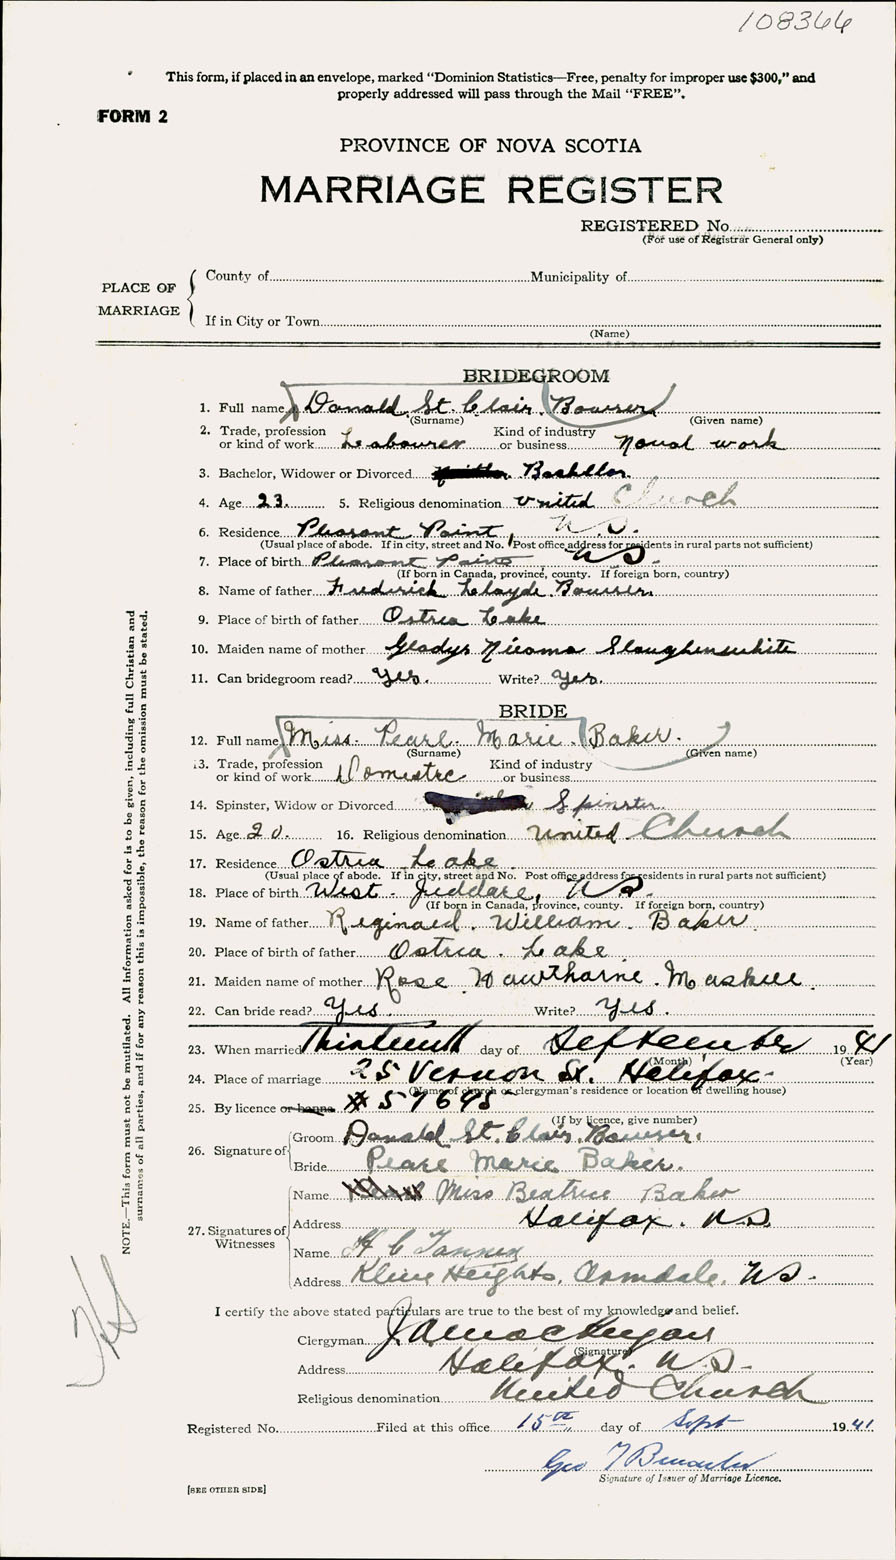 108366
This form, if placed in an envelope, marked "Dominion Statistics—Free, penalty for improper use $300," and
properly addressed will pass through the Mail "FREE".
FORM 2
PROVINCE OF NOVA SCOTIA
MARRIAGE REGISTER
REGISTERED No.
(For use of Registrar General only)
PLACE OF MARRIAGE
County of Municipality of
If in City or Town
(Name)
BRIDEGROOM
1. Full name Donald St. Clair Bowser
(Surname) (Given name)
2. Trade, profession or kind of work Labourer Kind of industry or business Naval work
3. Bachelor, Widower or Divorced Bachellor
4. Age 23. 5. Religious denomination United Church
6. Residence Pleasant Point, N.S.
(Usual place of abode. If in city, street and No. Post office address for residents in rural parts not sufficient)
7. Place of birth Pleasant Point N.S.
(If born in Canada, province, county. If foreign born, country)
8. Name of father Frederick Clayde Bowser.
9. Place of birth of father Ostrea Lake
10. Maiden name of mother Gladys Nicoma Slaughenwhite
11. Can bridegroom read? Yes. Write? Yes.
BRIDE
12. Full name Miss. Pearl. Marie. Baker.
(Surname) (Given name)
13. Trade, profession or kind of work Domestic Kind of industry or business
14. Spinster, Widow or Divorced Spinster
15. Age 20. 16. Religious denomination United Church
17. Residence Ostrea Lake
(Usual place of abode. If in city, street and No. Post office address for residents in rural parts not sufficient)
18. Place of birth West. Jeddore, N.S.
(If born in Canada, province, county. If foreign born, country)
19. Name of father Reginald. William. Baker
20. Place of birth of father Ostrea. Lake
21. Maiden name of mother Rose Hawthorne. Maskell.
22. Can bride read? Yes. Write? Yes.
23. When married Thirteenth day of September 1941
(Month) (Year)
24. Place of marriage 25 Vernon St. Halifax
(Name of church or clergyman's residence or location of dwelling house)
25. By licence or banns # 57695
(If by licence, give number)
26. Signature of
Groom Donald St. Clair. Bowser.
Bride Pearl Marie Baker.
27. Signatures of Witnesses
Name Miss Beatrice Baker
Address Halifax. N.S.
Name H C Tanner
Address Kline Heights, Armdale, N.S.
I certify the above stated particulars are true to the best of my knowledge and belief.
Clergyman
(Signature)
Address Halifax. N.S.
Religious denomination United Church
Registered No. Filed at this office 15th day of Sept 1941
Geo
Signature of Issuer of Marriage Licence.
[SEE OTHER SIDE]
NOTE.—This form must not be mutilated. All information asked for is to be given, including full Christian and
surnames of all parties, and if for any reason this is impossible, the reason for the omission must be stated.